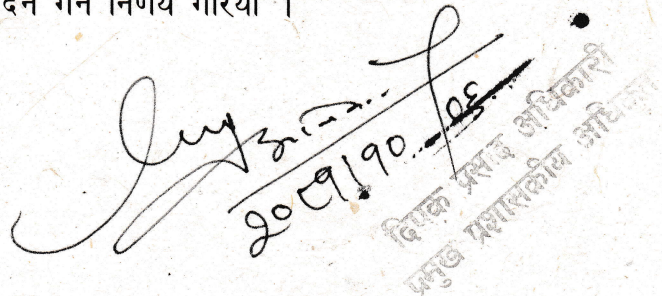 गर्ने निर्णय गरियो ।
२०८१।१०
दिपक प्रसाद अधिकारी
प्रमुख प्रशासकीय अधिकृत